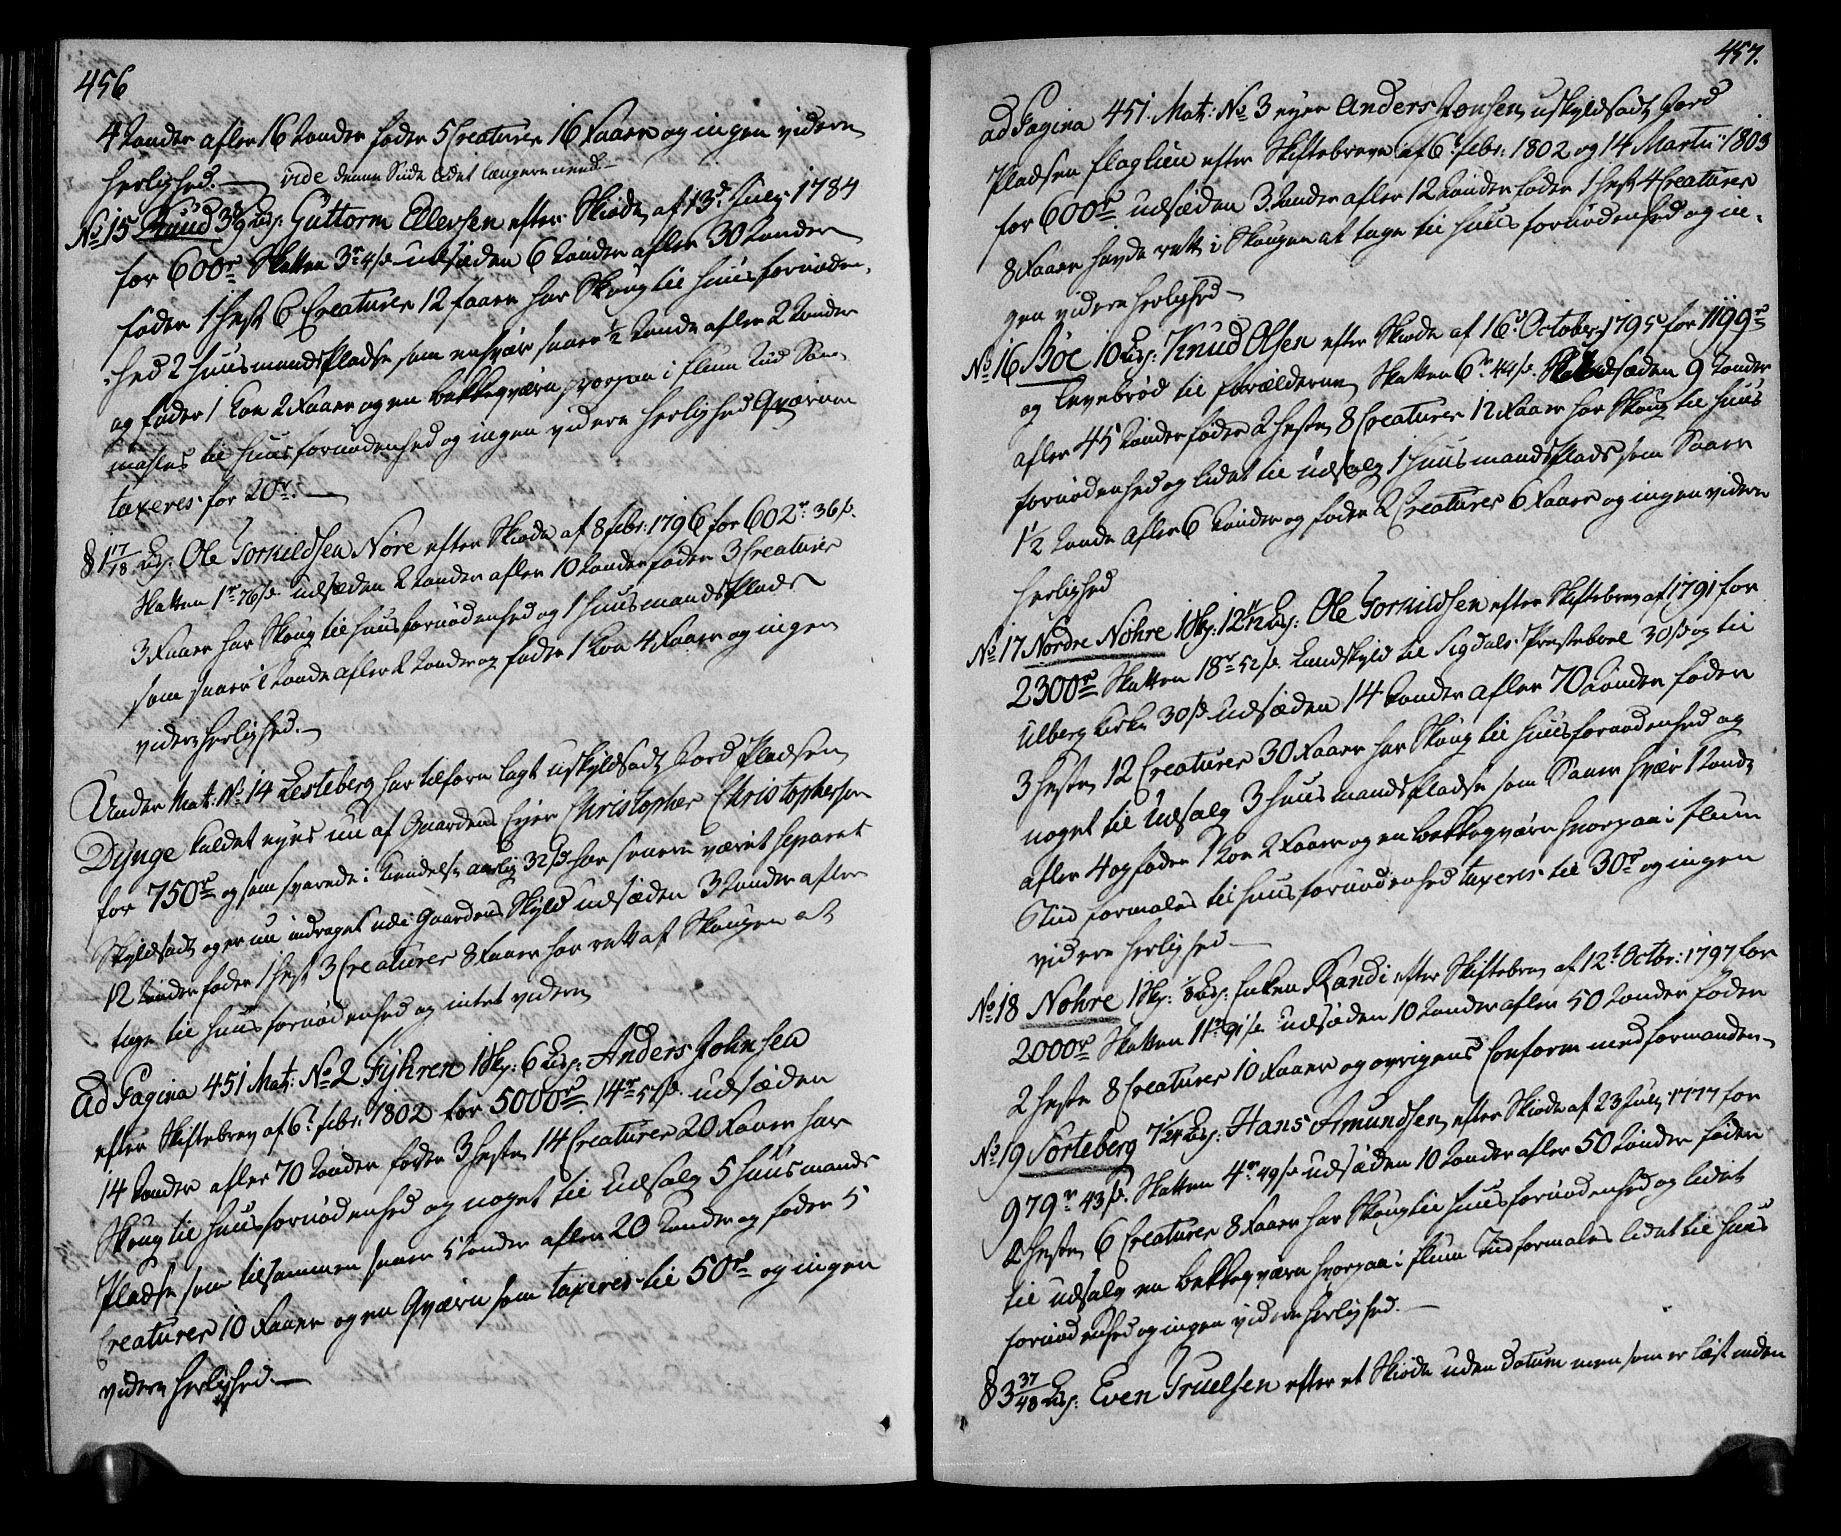 456
4 Tønder afler 16 Tønder føder 5 Creaturer 16 Faaer og ingen videre
herlighed.— vide denne Side lidet længere nend
No 15 Ruud 3 Lisp: Guttorm Ellevsen efter Skiøde af 13d July 1784
for 600r Skatten 3r 4s udsæden 6 Tønder afler 30 Tønder
føder 1 hest 6 Creaturer 12 faarer har Skoug til huusfornøden-
hed 2 huusmandsPladse som enhver saaer 1/2 Tønde afler 2 Tønder
og føder 1 Koe 2 Faaer og en bekkeqværn hvorpaa i flum Tiid For-
mahles til huusfornødenhed og ingen videre herlighed Qværnen
taxeres for 20r.—
8 1 17/18 Lisp: Ole Torkildsen Nøre efter Skiøde af 8 febr: 1796 for 602r. 36s.
Skatten 1r 76s. udsæden 2 Tønder afler 10 Tønder føder 3 Creaturer
3 Faaer har Skoug til huusfornødenhed og 1 huusmandsPlads
som saaer 1/2 Tønde afler 2 Tønder og føder 1 Koe 4 Faaer og ingen
videre herlighed.—
Under Mat: No 14 Lesteberg har tilforn lagt uskyldsadt Jord Pladsen
Dynge kaldet eyes nu af Gaardens Eyer Christopher Christophersen
for 750r og som svarede i Kiendelse aarlig 32s har senere været separat
Skyldsadt og er nu inddraget udi Gaardens Skyld udsæden 3 Tønder afler
12 Tønder føder 1 hest 3 Creaturer 8 Faaer har rett af Skougen at
tage til huusfornødenhed og intet videre
Ad Pagina 451 Mat: No 2 Fyhren 1 Skp: 6 Lisp: Anders Johnsen
efter Skiftebrev af 6t febr: 1802 for 5000r 14r 57s. udsæden
14 Tønder afler 70 Tønder føder 3 heste 14 Creaturer 20 Faaer har
Skoug til huusfornødenhed og noget til Udsalg 5 huusmands
Pladse som tilsammen saaer 5 Tønder afler 20 Tønder og føder 5
Creaturer 10 Faaer og en Qværn som taxeres til 50r og ingen
videre herlighed.—
457.
ad Pagina 451. Mat: No 3 eyer Anders Jonsen uskyldsadt Jord
Pladsen Flaglien efter Skiftebreve af 6t febr: 1802 og 14 Martii 1803
for 600r udsæden 3 Tønder afler 12 Tønder føder 1 hest 4 Creaturer
8 Faaer havde rett i Skougen at tage til huusfornødenhed og in-
gen videre herlighed—
No 16 Bøe 10 Lisp: Knud Olsen efter Skiøde af 16d October 1795 for 1199r
og Levebrød til forælderne Skatten 6r 44s. udsæden 9 Tønder
afler 45 Tønder føder 2 heste 8 Creaturer 12 Faaer har Skoug til huus
fornødenhed og lidet til udsalg 1 huusmandsPlads som Saaer
1 1/2 Tønde afler 6 Tønder og føder 2 Creaturer 6 Faaer og ingen videre
herlighed
No 17 Nordre Nøhre 1 Skp: 12 Lisp: Ole Torkildsen efter Skiftebrev af 1791 for
2300r Skatten 18r 52s. Landskyld til Sigdals Præsteboel 30s og til
Ulberg Kirke 30s udsæden 14 Tønder afler 70 Tønder føder
3 heste 12 Creaturer 30 Faaer har Skoug til huusfornødenhed og
noget til Udsalg 3 huusmandsPladse som Saaer hver 1 Tønde
afler 4 og føder 1 Koe 2 Faaer og en bekkeqværn hvorpaa i flum
Tiid formales til huusfornødenhed taxeres til 30r og ingen
videre herlighed—
No 18 Nøhre 1 Skp: 1/8 Lisp: Enken Randi efter Skiftebrev af 12t Octbr: 1797 for
2000r Skatten 11r 91s udsæden 10 Tønder afler 50 Tønder føder
2 heste 8 Creaturer 10 Faaer og øvrigens Conform med formanden
No 19 Sorteberg Lisp: Hans Amundsen efter Skiøde af 23 July 1777 for
979r 43s. Skatten 4r 49s udsæden 10 Tønder afler 50 Tønder føder
2 heste 6 Creaturer 8 Faaer har Skoug til huusfornødenhed og lidet
til udsalg en bekkeqværn hvorpaa i flum Tiid formales lidet til huus
fornødenhed og ingen videre herlighed.—
8 3 37/48 Lisp: Even Truelsen efter et Skiøde uden datum men som er læst inden